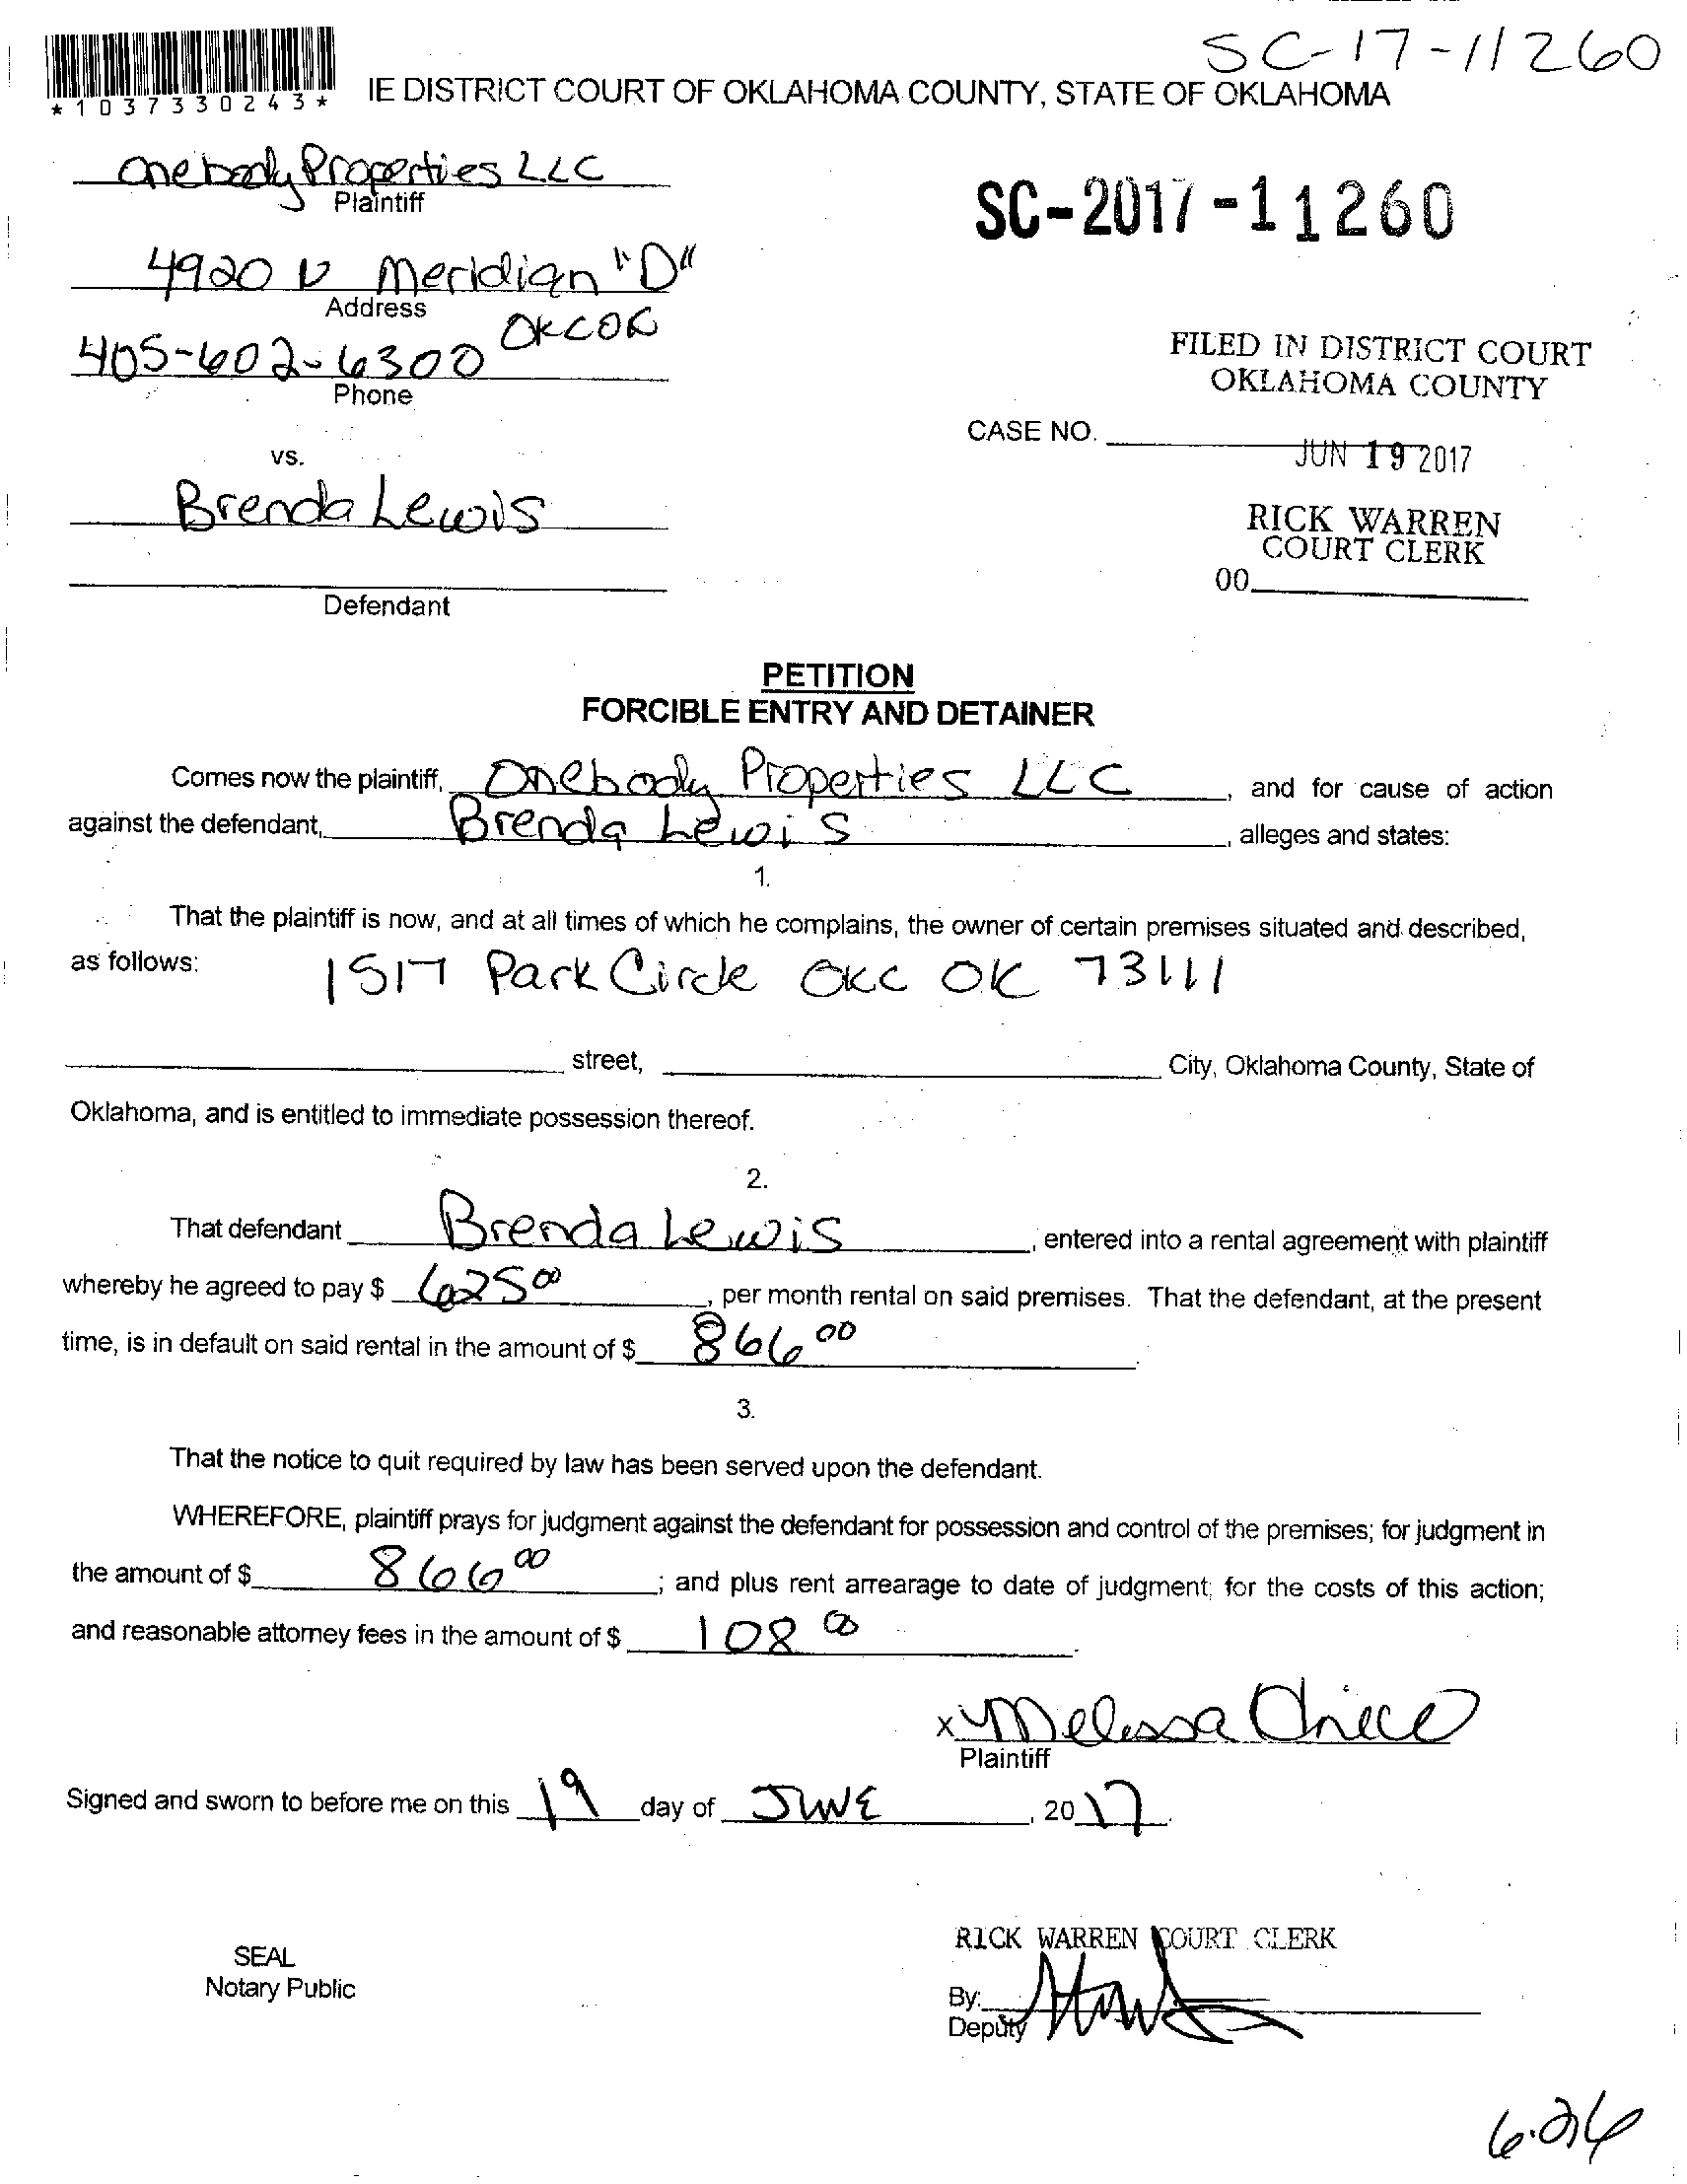 SC-17-11260
*1037330243*
IE DISTRICT COURT OF OKLAHOMA COUNTY, STATE OF OKLAHOMA
Onebody Properties LLC
Plaintiff
SC-2017-11260
4920 N Meridian "D"
Address
OKC OK
405-602-6300
Phone
FILED IN DISTRICT COURT
OKLAHOMA COUNTY
CASE NO.
JUN 19 2017
vs.
Brenda Lewis
RICK WARREN
COURT CLERK
00
Defendant
PETITION
FORCIBLE ENTRY AND DETAINER
Comes now the plaintiff, Onebody Properties LLC, and for cause of action
against the defendant, Brenda Lewis, alleges and states:
1.
That the plaintiff is now, and at all times of which he complains, the owner of certain premises situated and described,
as follows: 1517 Park Circle OKC OK 73111
street, City, Oklahoma County, State of
Oklahoma, and is entitled to immediate possession thereof.
2.
That defendant Brenda Lewis, entered into a rental agreement with plaintiff
whereby he agreed to pay $ 625 00, per month rental on said premises. That the defendant, at the present
time, is in default on said rental in the amount of $ 866 00.
3.
That the notice to quit required by law has been served upon the defendant.
WHEREFORE, plaintiff prays for judgment against the defendant for possession and control of the premises; for judgment in
the amount of $ 866 00; and plus rent arrearage to date of judgment; for the costs of this action;
and reasonable attorney fees in the amount of $ 108 00.
x Melissa
Plaintiff
Signed and sworn to before me on this 19 day of JUNE, 2017.
RICK WARREN COURT CLERK
SEAL
Notary Public
By:
Deputy
6.26